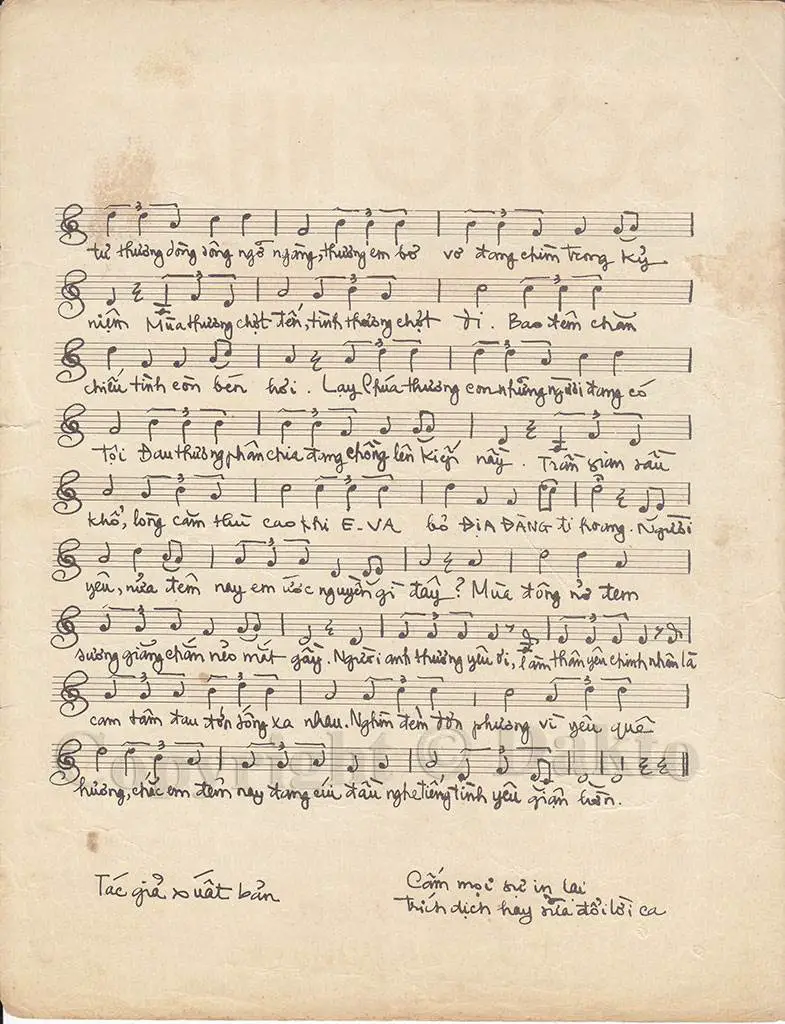 từ thương dòng sông ngỡ ngàng, thương em bơ vơ đang chìm trong kỷ
niệm Mùa thương chợt đến, tình thương chợt đi. Bao đêm chăn
chiếu tình còn bén hơi. Lạy Chúa thương con những người đang có
tội Đau thương phân chia đang chồng lên kiếp nầy. Trần gian sầu
khổ, lòng căm thù cao khi E-VA bỏ ĐỊA ĐÀNG đi hoang. Người
yêu, nửa đêm nay em ước nguyền gì đây? Mùa đông nở đem
sương giăng chắn nẻo mắt gầy. Người anh thương yêu ơi, làm thân yêu chinh nhân là
cam tâm đau đớn sống xa nhau. Nghìn đêm đơn phương vì yêu quê
hương, chắc em đêm nay đang cúi đầu nghe tiếng tình yêu giận hờn.
Copyright © Dukto
Tác giả xuất bản
Cấm mọi sự in lại
trích dịch hay sửa đổi lời ca